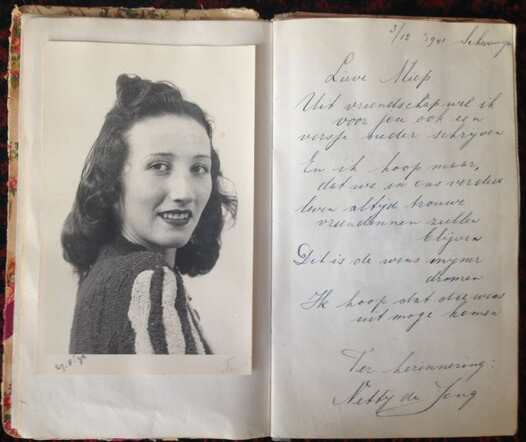 3/12 1941
Lieve Miep
Uit vriendschap wil ik
voor jou ook een
versje neder schrijven
En ik hoop maar,
dat we in ons verdere
leven altijd trouwe
vriendinnen zullen
blijven
Dit is de wens mijner
dromen
Ik hoop dat deze wens
uit moge komen
Ter herinnering:
Netty de Jong